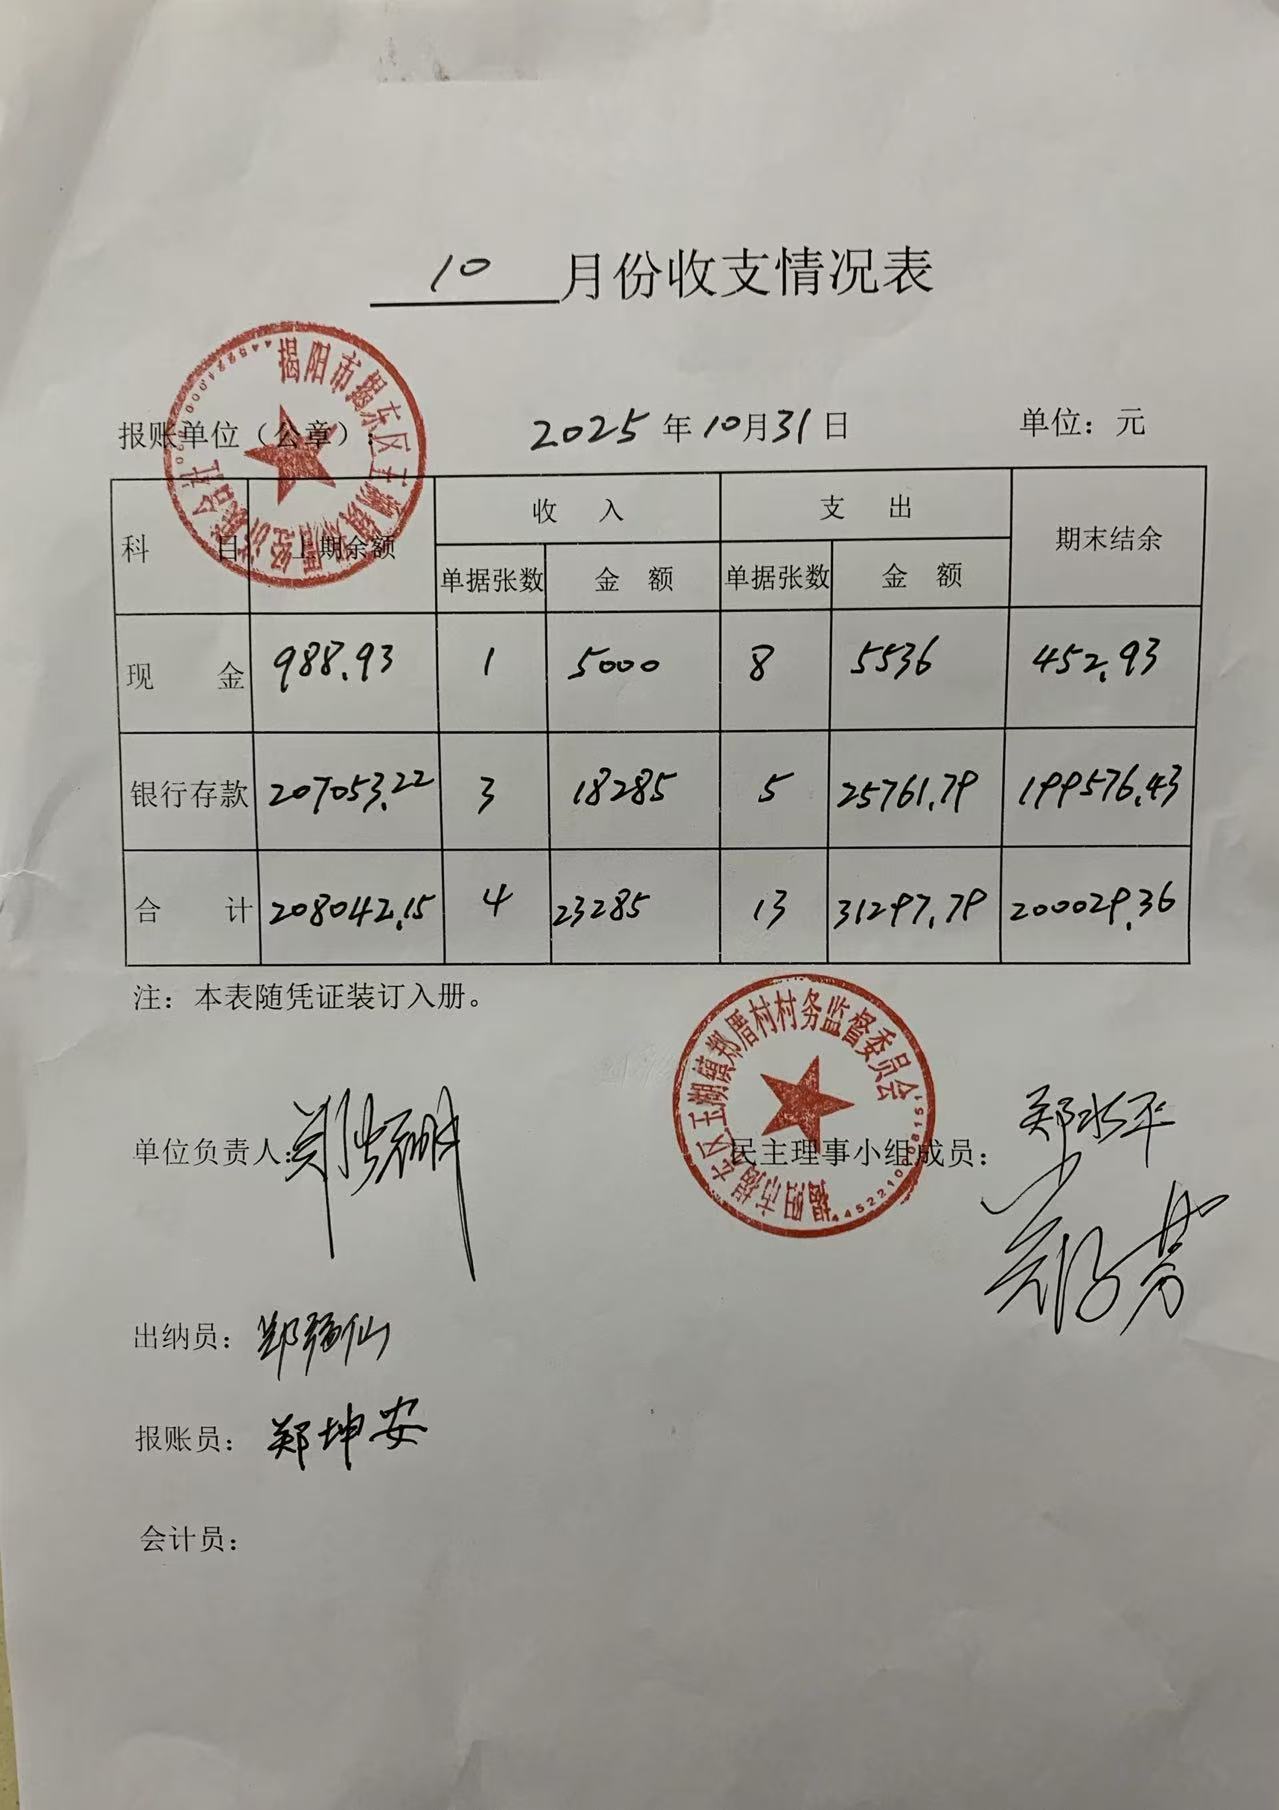 10 月份收支情况表
揭阳市揭东区玉湖镇郑厝经济联合社
报账单位（公章）： 2025 年 10月 31 日 单位：元
科目 上期余额 收入 支出 期末结余
单据张数 金额 单据张数 金额
现金 988.93 1 5000 8 5536 452.93
银行存款 207053.22 3 18285 5 25761.79 199576.43
合计 208042.15 4 23285 13 31297.79 200029.36
注：本表随凭证装订入册。
揭阳市揭东区玉湖镇郑厝村村务监督委员会
单位负责人： 民主理事小组成员： 郑水平
出纳员： 郑强仙
报账员： 郑坤安
会计员：